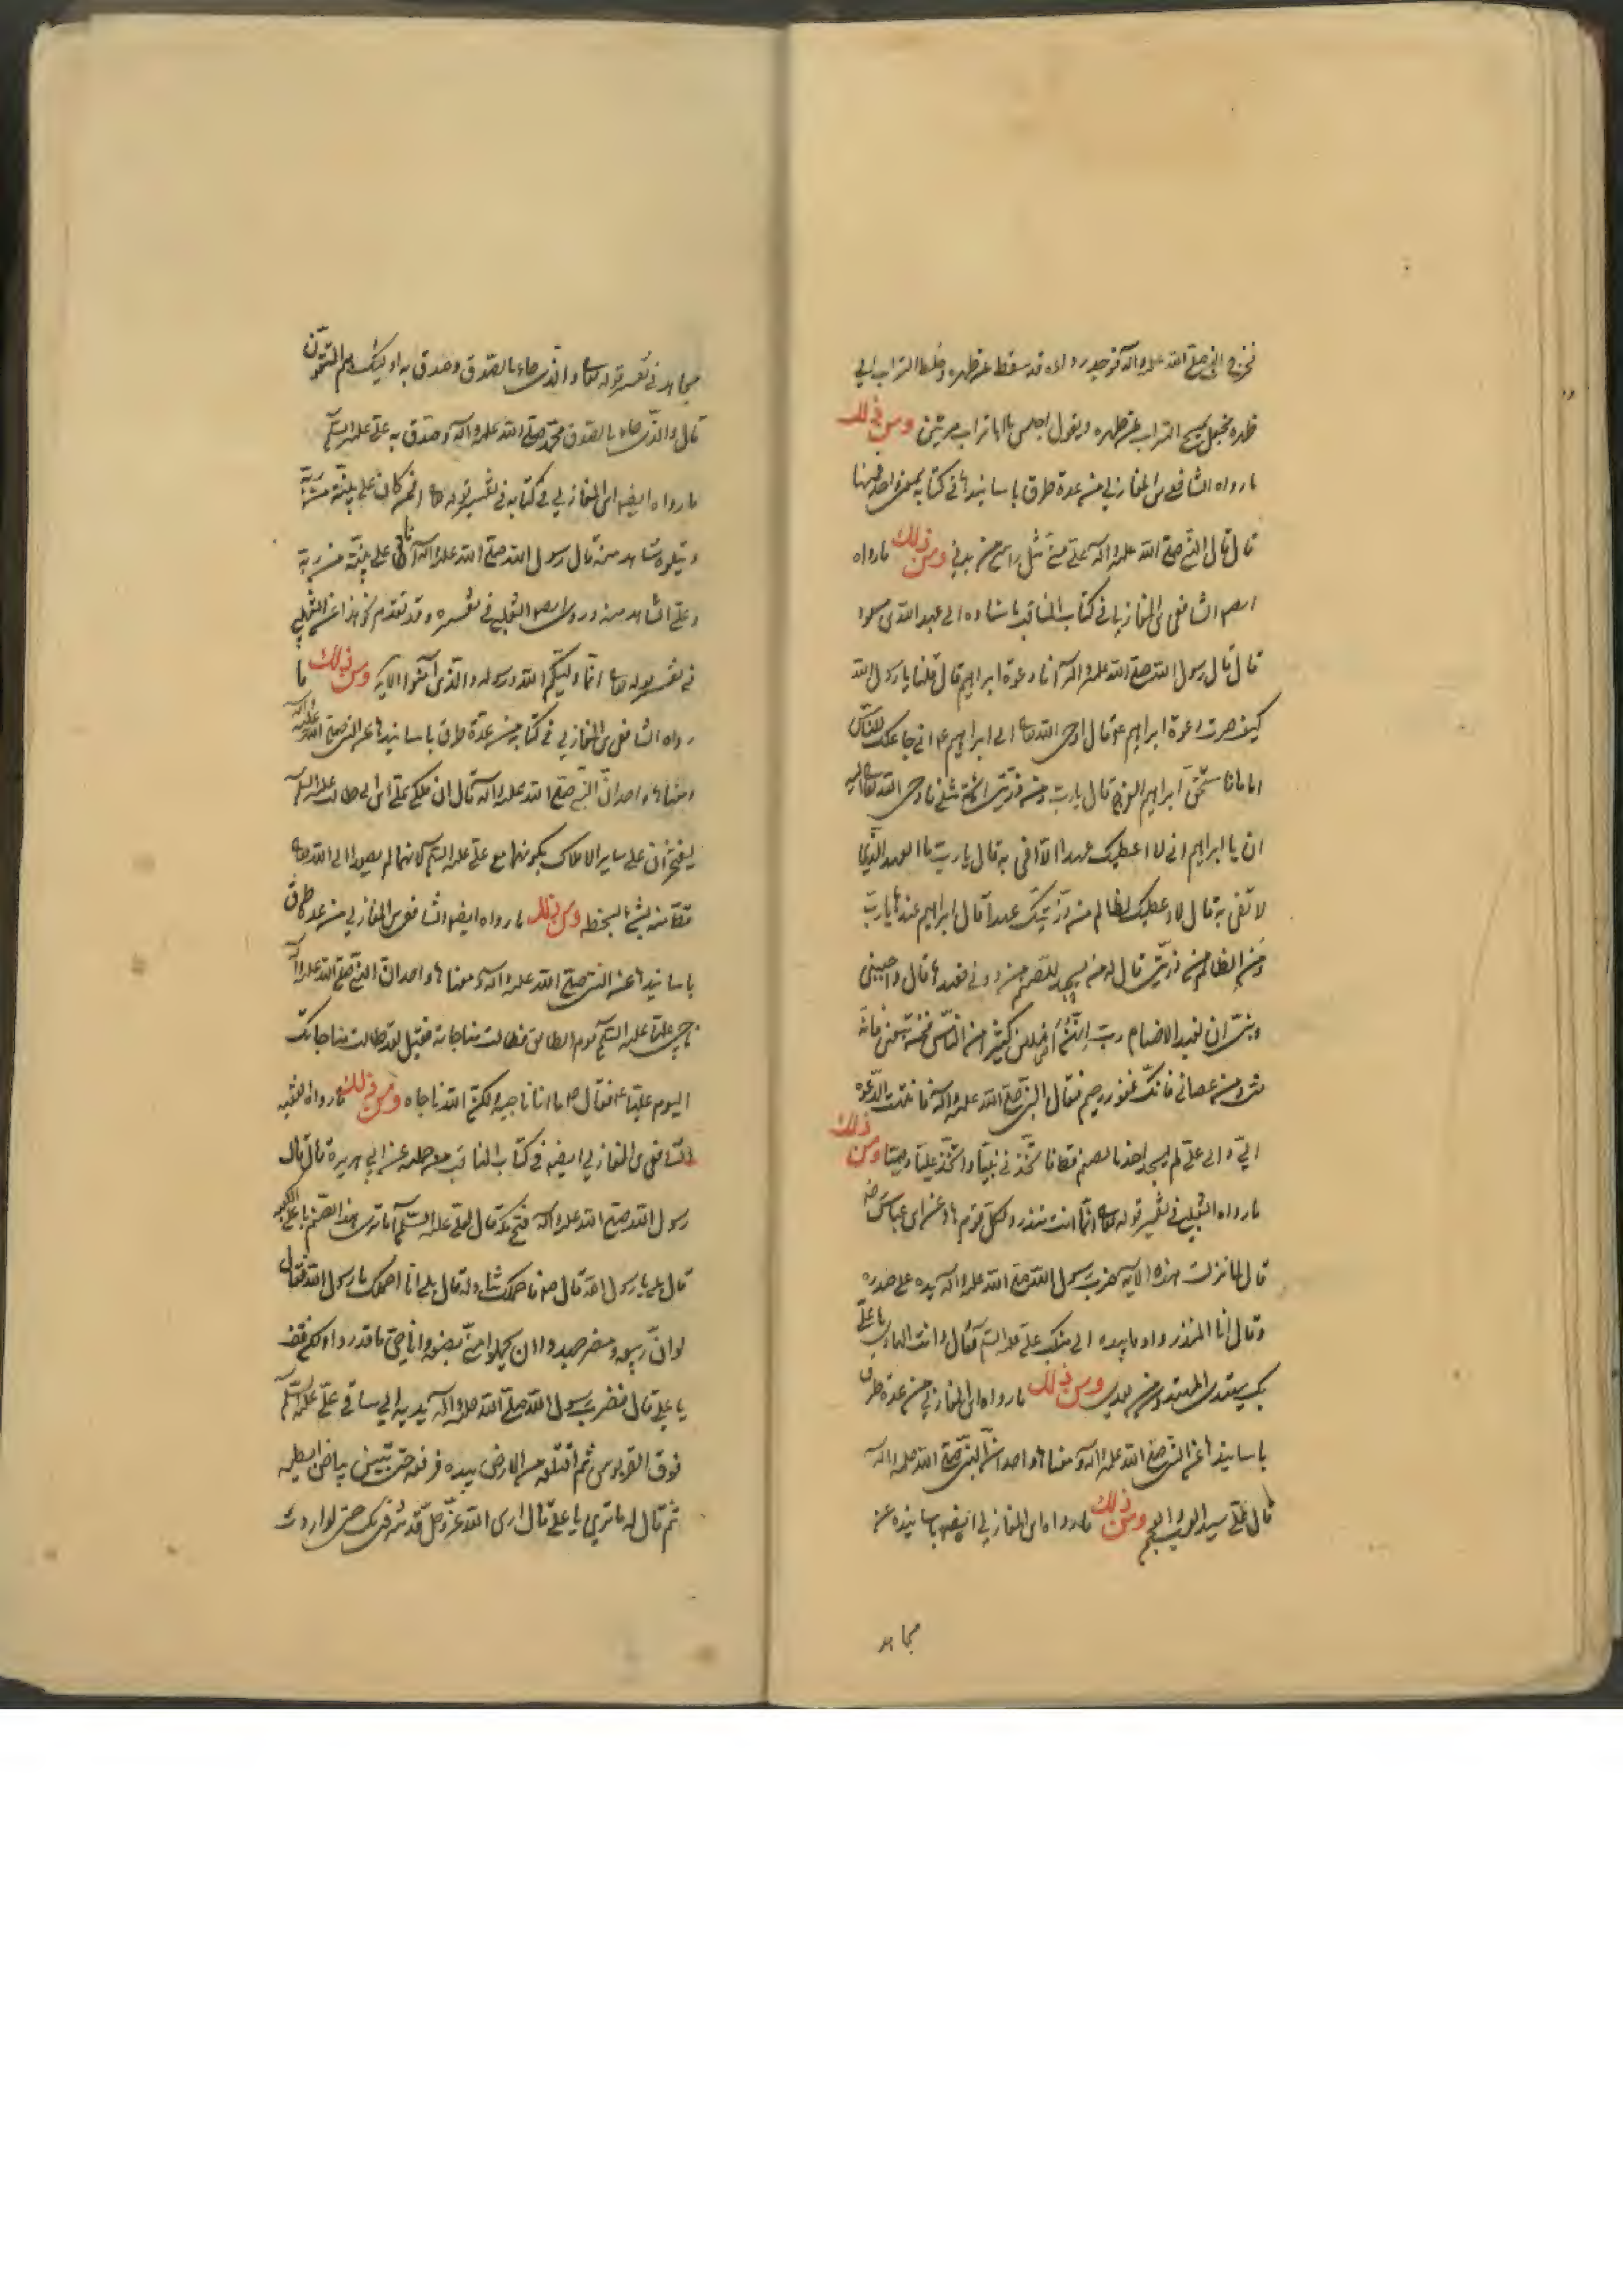 فخرج النبي صلى الله عليه وآله فوجد رداءه قد سقط عن ظهره وخلط التراب الى
ظهره فجعل يمسح التراب عن ظهره ويقول اجلس يا ابا تراب مرتين ومن ذلك
ما رواه الشافعي ابن المغازلي من عدة طرق باسانيدها في كتابه بمعنى واحد فمنها
قال قال النبي صلى الله عليه وآله علي مني مثل راسي من بدني ومن ذلك ما رواه
ايضا الشافعي ابن المغازلي في كتاب المناقب باسناده الى عبد الله بن مسعود
قال قال رسول الله صلى الله عليه وآله انا دعوة ابراهيم قال قلنا يا رسول الله
كيف صرت دعوة ابراهيم ع قال اوحى الله تعالى الى ابراهيم ع اني جاعلك للناس
اماما فاستخف ابراهيم الفرح قال يا رب ومن ذريتي ائمة مثلي فاوحى الله تعالى اليه
ان يا ابراهيم اني لا اعطيك عهدا لا افي به قال يا رب ما العهد الذي
لا تفي به قال لا اعطيك لظالم من ذريتك عهدا قال ابراهيم عندها يا رب
ومن الظالم من ذريتي قال له من يسجد للصنم من دوني يعبدها قال واجنبني
وبني ان نعبد الاصنام رب انهن اضللن كثيرا من الناس فمن تبعني فانه
مني ومن عصاني فانك غفور رحيم فقال النبي صلى الله عليه وآله فانتهت الدعوة
الي والى علي لم يسجد احدنا لصنم قط فاتخذني نبيا واتخذ عليا وصيا ومن ذلك
ما رواه الثعلبي في تفسير قوله تعالى انما انت منذر ولكل قوم هاد عن ابن عباس رض
قال لما نزلت هذه الآية ضرب رسول الله صلى الله عليه وآله يده على صدره
وقال انا المنذر واوما بيده الى منكب علي عليه السلم فقال وانت الهادي يا علي
بك يهتدي المهتدون من بعدي ومن ذلك ما رواه ابن المغازلي من عدة طرق
باسانيدها عن النبي صلى الله عليه وآله ومعناها واحد ان النبي صلى الله عليه وآله
قال علي سيد العرب والعجم ومن ذلك ما رواه ابن المغازلي ايضا باسانيده عن
مجاهد
مجاهد في تفسير قوله تعالى والذي جاء بالصدق وصدق به اولئك هم المتقون
قال والذي جاء بالصدق محمد صلى الله عليه وآله وصدق به علي عليه السلم
ما رواه ايضا ابن المغازلي في كتابه في تفسير قوله تعالى افمن كان على بينة من ربه
ويتلوه شاهد منه قال رسول الله صلى الله عليه وآله انا على بينة من ربه
وعلي الشاهد منه وروى ايضا الثعلبي في تفسيره وقد تقدم نحو هذا عن الثعلبي
في تفسير قوله تعالى انما وليكم الله ورسوله والذين آمنوا الآية ومن ذلك ما
رواه الشافعي ابن المغازلي في كتابه من عدة طرق باسانيدها عن النبي صلى الله عليه وآله
ومعناها واحد ان النبي صلى الله عليه وآله قال ان ملكي علي ابن ابي طالب عليه السلم
ليفتخران على ساير الاملاك بكونهما مع علي عليه السلم لانهما لم يصعدا الى الله تعالى
قط منه بشيء يسخطه ومن ذلك ما رواه ايضا الشافعي ابن المغازلي من عدة طرق
باسانيدها عن النبي صلى الله عليه وآله ومعناها واحد ان النبي صلى الله عليه وآله
ناجى عليا عليه السلم يوم الطائف فطالت مناجاته فقيل لقد طالت مناجاتك
اليوم عليا ع فقال ص ما انا ناجيته ولكن الله ناجاه ومن ذلك ما رواه الفقيه
الشافعي ابن المغازلي ايضا في كتاب المناقب عن ابي هريرة قال قال
رسول الله صلى الله عليه وآله فتح مكة قال لعلي عليه السلم اما ترى هذا الصنم باعلى الكعبة
قال بلى يا رسول الله قال فاحملك فتناوله قال بل انا احملك يا رسول الله فقال
لو ان ربيعة ومضر جهدوا ان يحملوا مني بضعة وانا حي ما قدروا ولكن قف
يا علي قال فضرب رسول الله صلى الله عليه وآله بيديه الى ساقي علي عليه السلم
فوق القربوس ثم اقتلعه من الارض بيده فرفعه حتى تبين بياض ابطيه
ثم قال له ما ترى يا علي قال ارى الله عز وجل قد شرفني بك حتى لو اردت